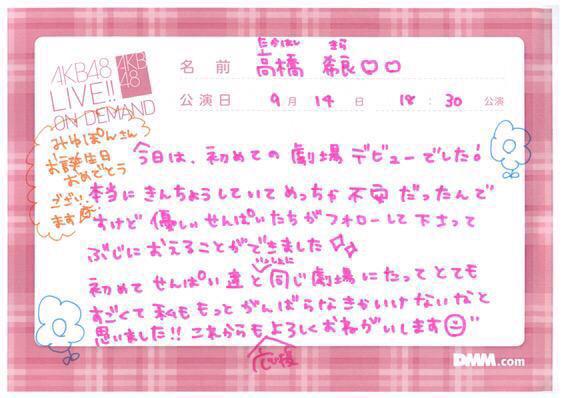 AKB48
LIVE!!
ON DEMAND
AKB
48
たかはし きら
名前 高橋 希良♡♡
公演日 9月 14日 18:30 公演
みゆぽんさん
お誕生日
おめでとう
ござい
ます
今日は、初めての劇場デビューでした!
本当にきんちょうしていてめっちゃ不安だったんで
すけど優しいせんぱいたちがフォローして下さって
ぶじにおえることができました
いっしょに
初めてせんぱい達と同じ劇場にたってとても
すごくて私ももっとがんばらなきゃいけないなと
思いました!! これからもよろしくおねがいします
応援
DMM.com